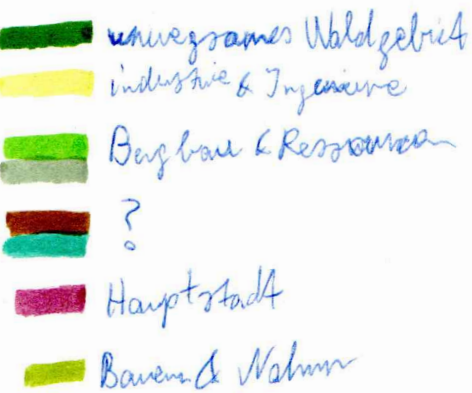 unwegsames Waldgebiet
industrie & Ingenieure
Bergbau & Ressourcen
?
Hauptstadt
Bauern &